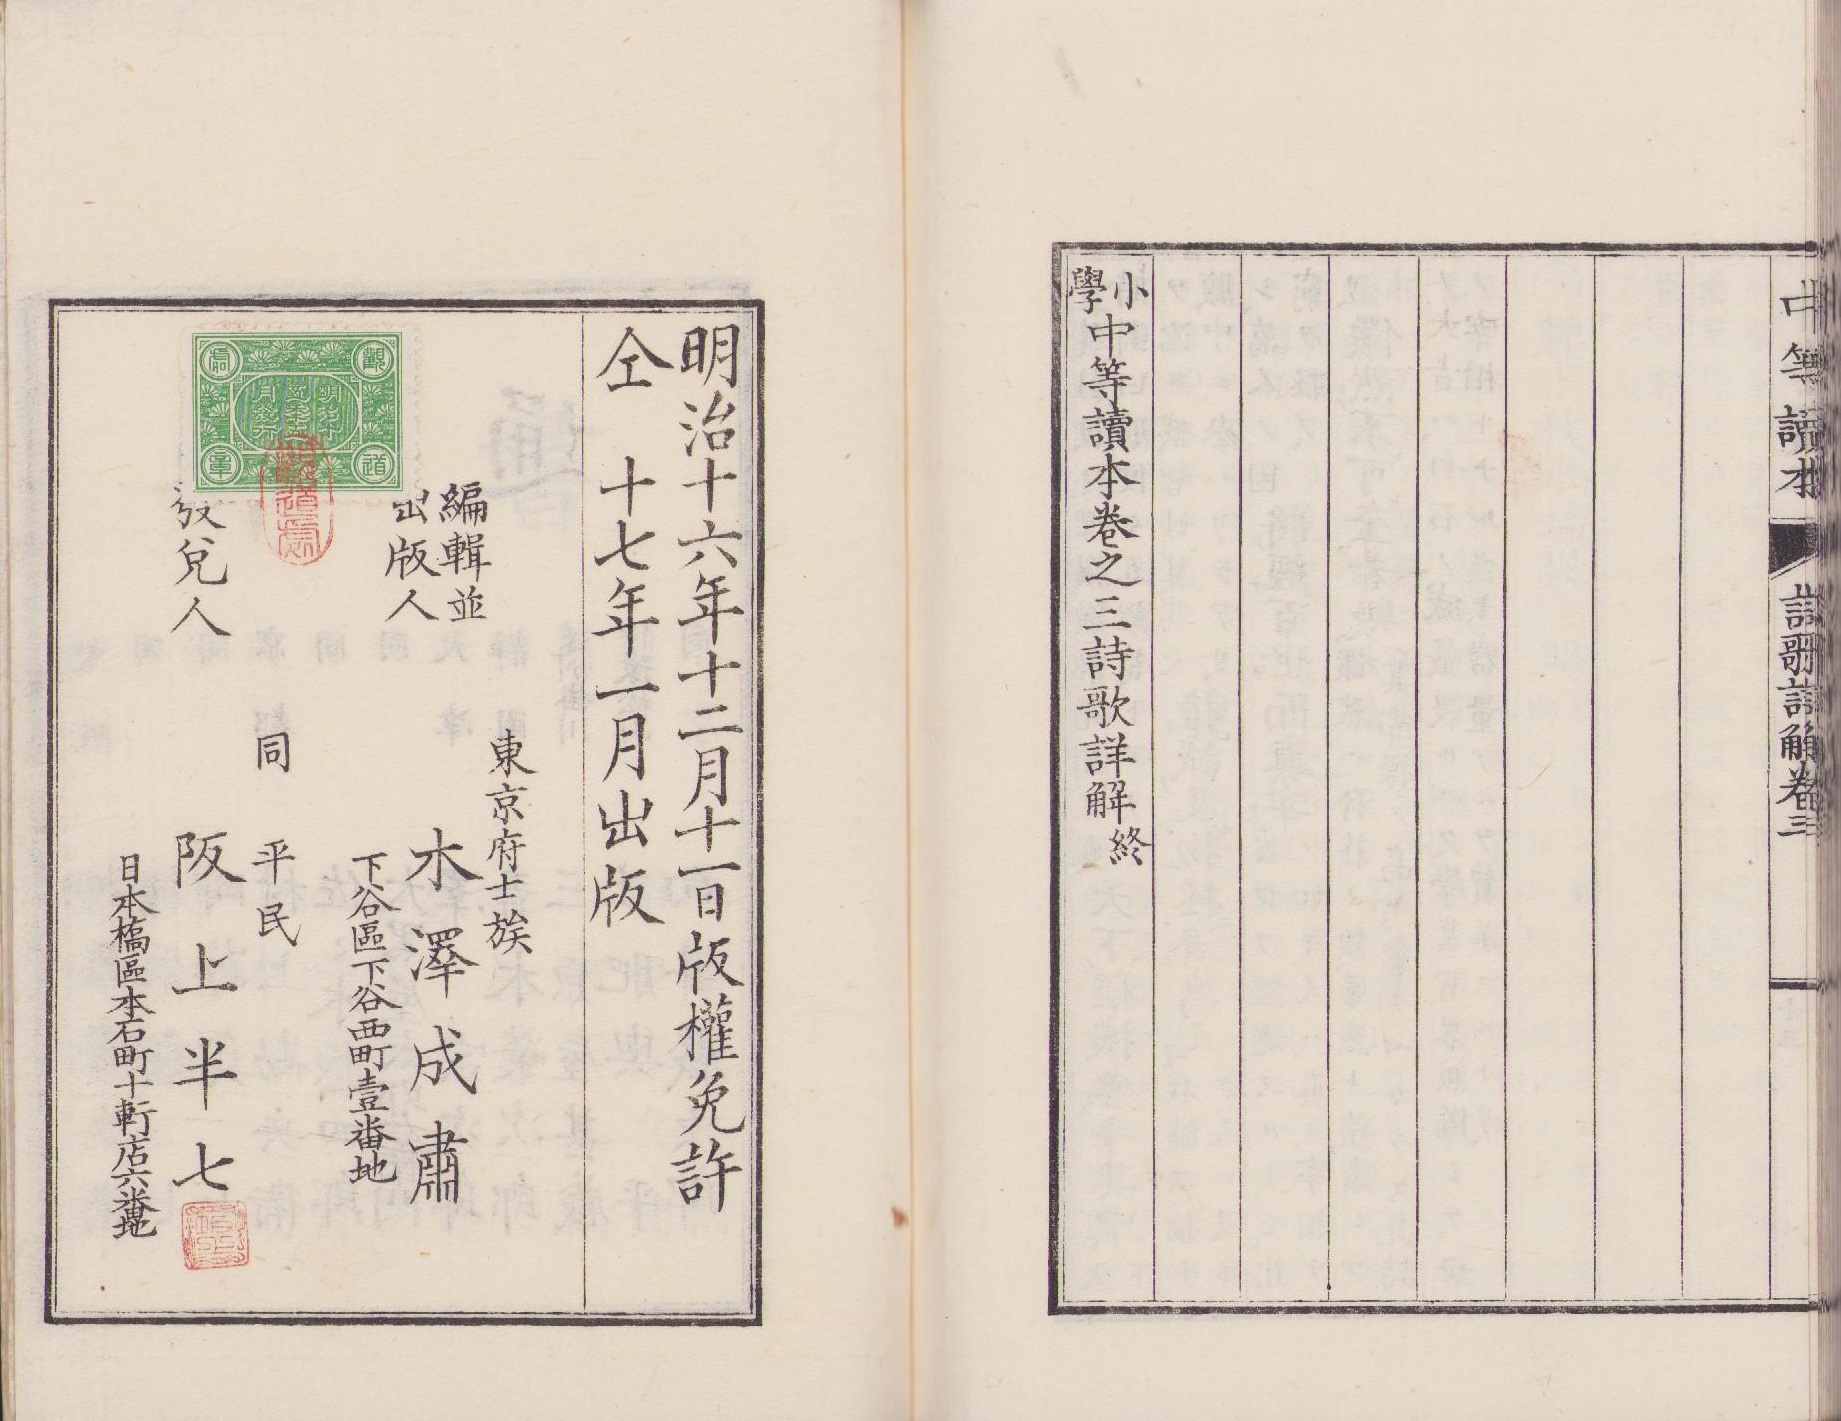 中等讀本 詩歌詳解卷三
小學中等讀本卷之三詩歌詳解終
明治十六年十二月十一日版權免許
仝 十七年一月出版
東京府士族
編輯並
出版人
木澤成肅
下谷區下谷西町壹番地
同 平民
發兌人
阪上半七
日本橋區本石町十軒店六番地
觀
道
處
章